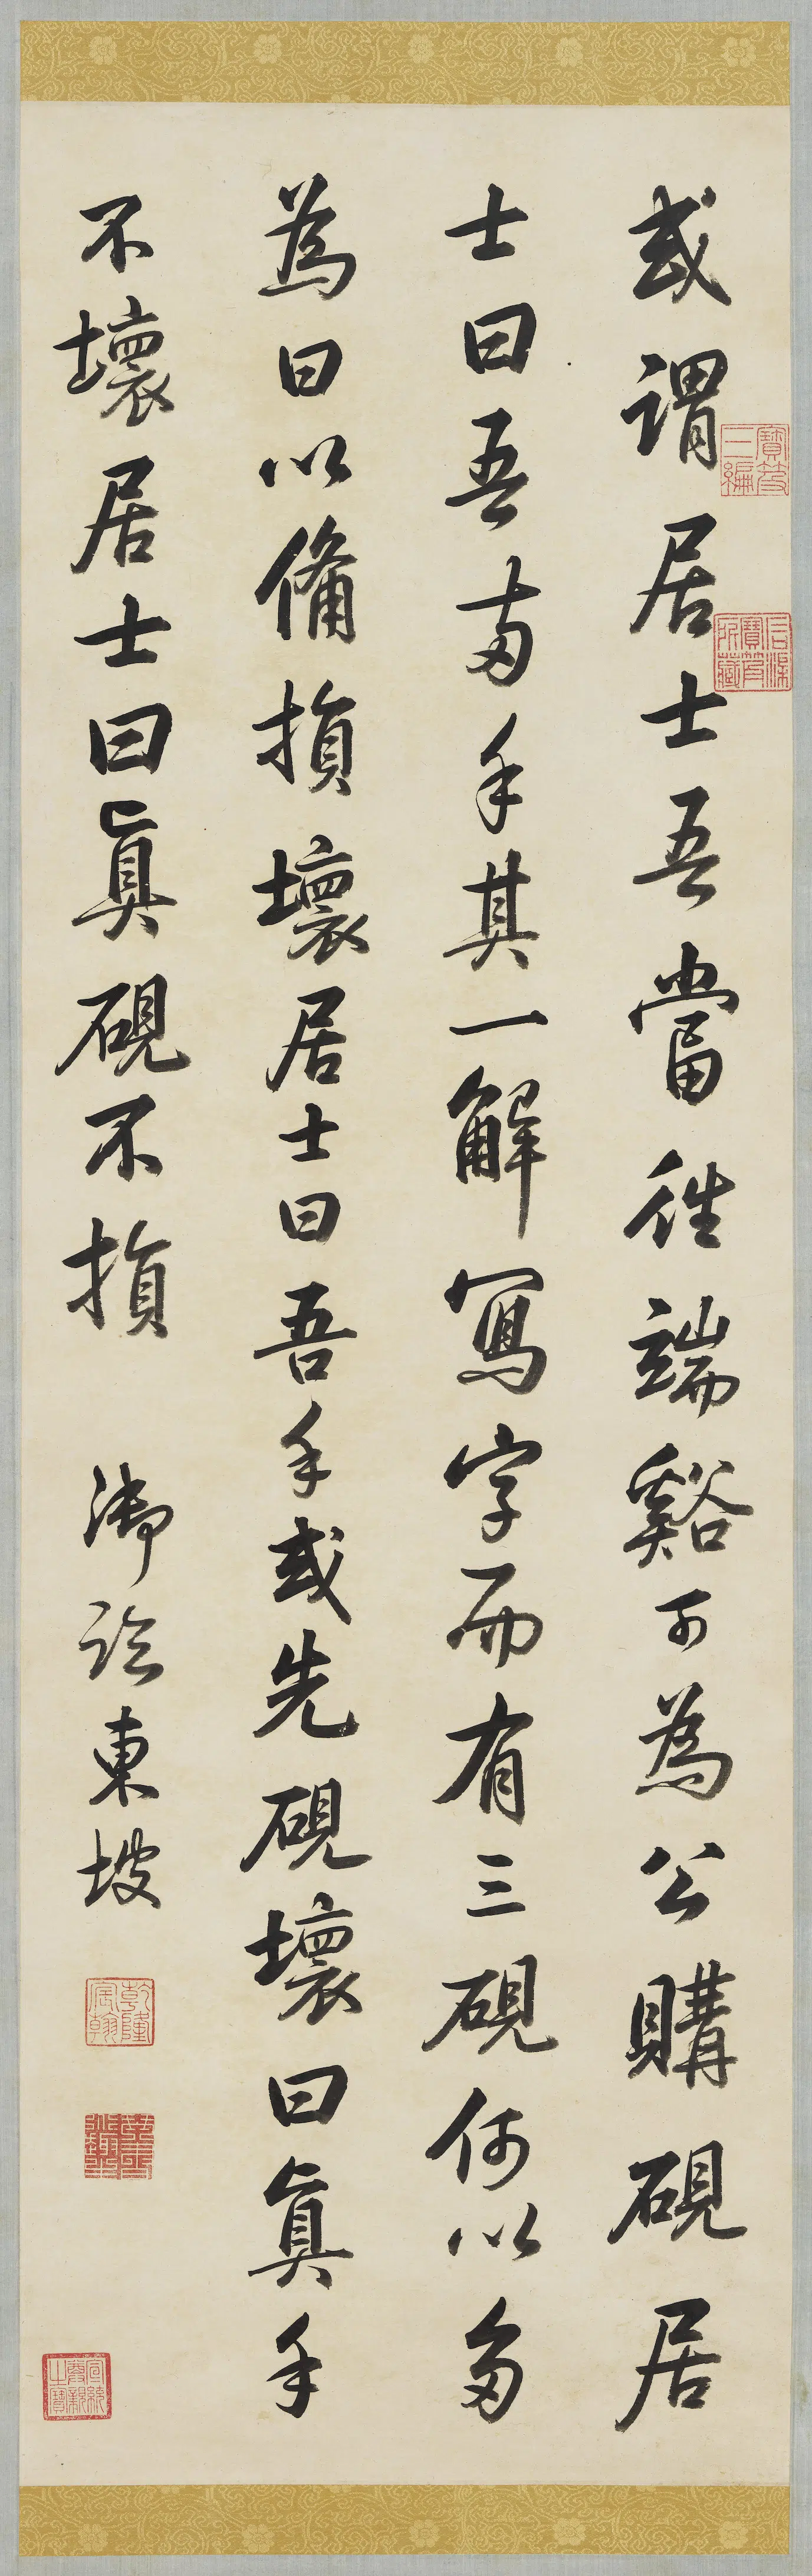 或謂居士吾當往端谿可為公購硯居
士曰吾兩手其一解寫字而有三硯何以多
為曰以備損壞居士曰吾手或先硯壞曰眞手
不壞居士曰眞硯不損 御臨東坡
寶笈三編
石渠寶笈所藏
乾隆宸翰
宣統尊親之寶